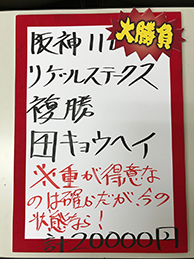 大勝負
阪神11R
リゲルステークス
複勝
田キョウヘイ
※重が得意な
のは確かだが、今の
状態なら!
計20000円